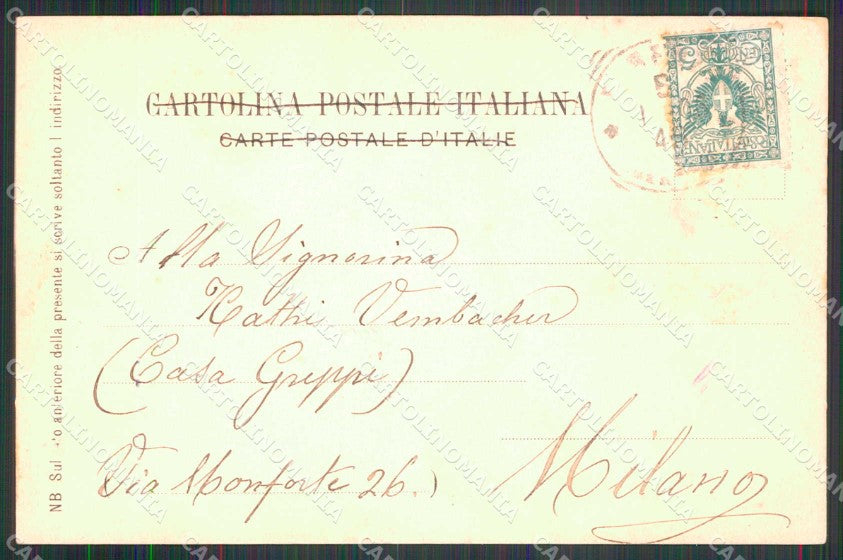 CARTOLINA POSTALE ITALIANA
CARTE POSTALE D'ITALIE
Alla Signorina
Kathi Vembacher
(Casa Greppi)
Via Monforte 26.)
Milano
NB Sul anteriore della presente si scrive soltanto l indirizzo
CARTOLINOMANIA